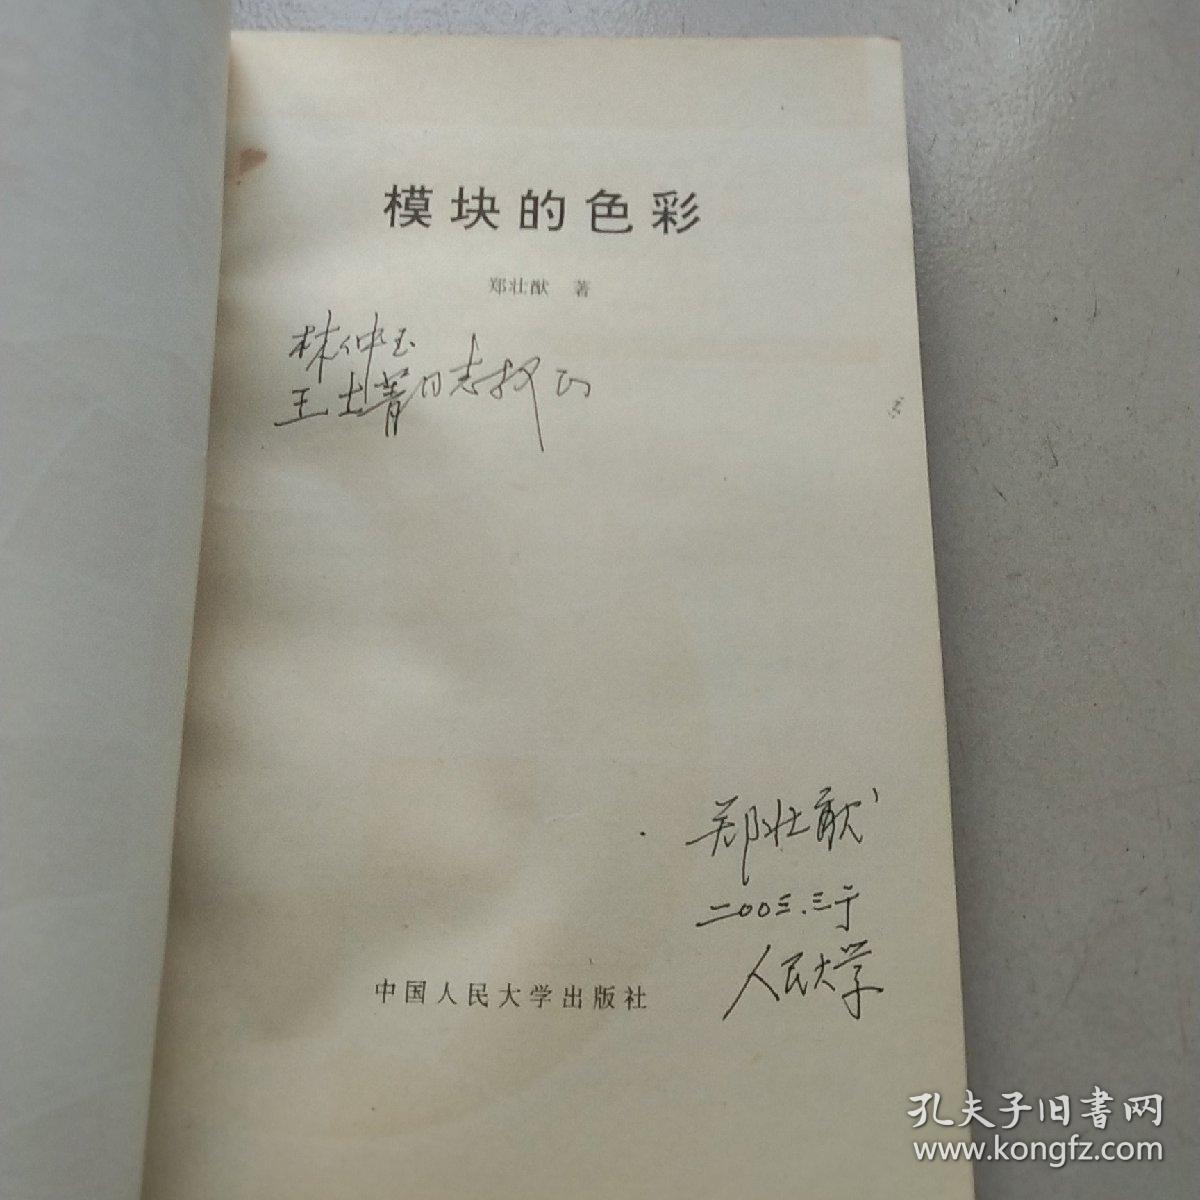 模块的色彩
郑壮猷 著
林仲玉
王士菁同志教正
郑壮猷
二00三.三于
人民大学
中国人民大学出版社
孔夫子旧書网
www.kongfz.com